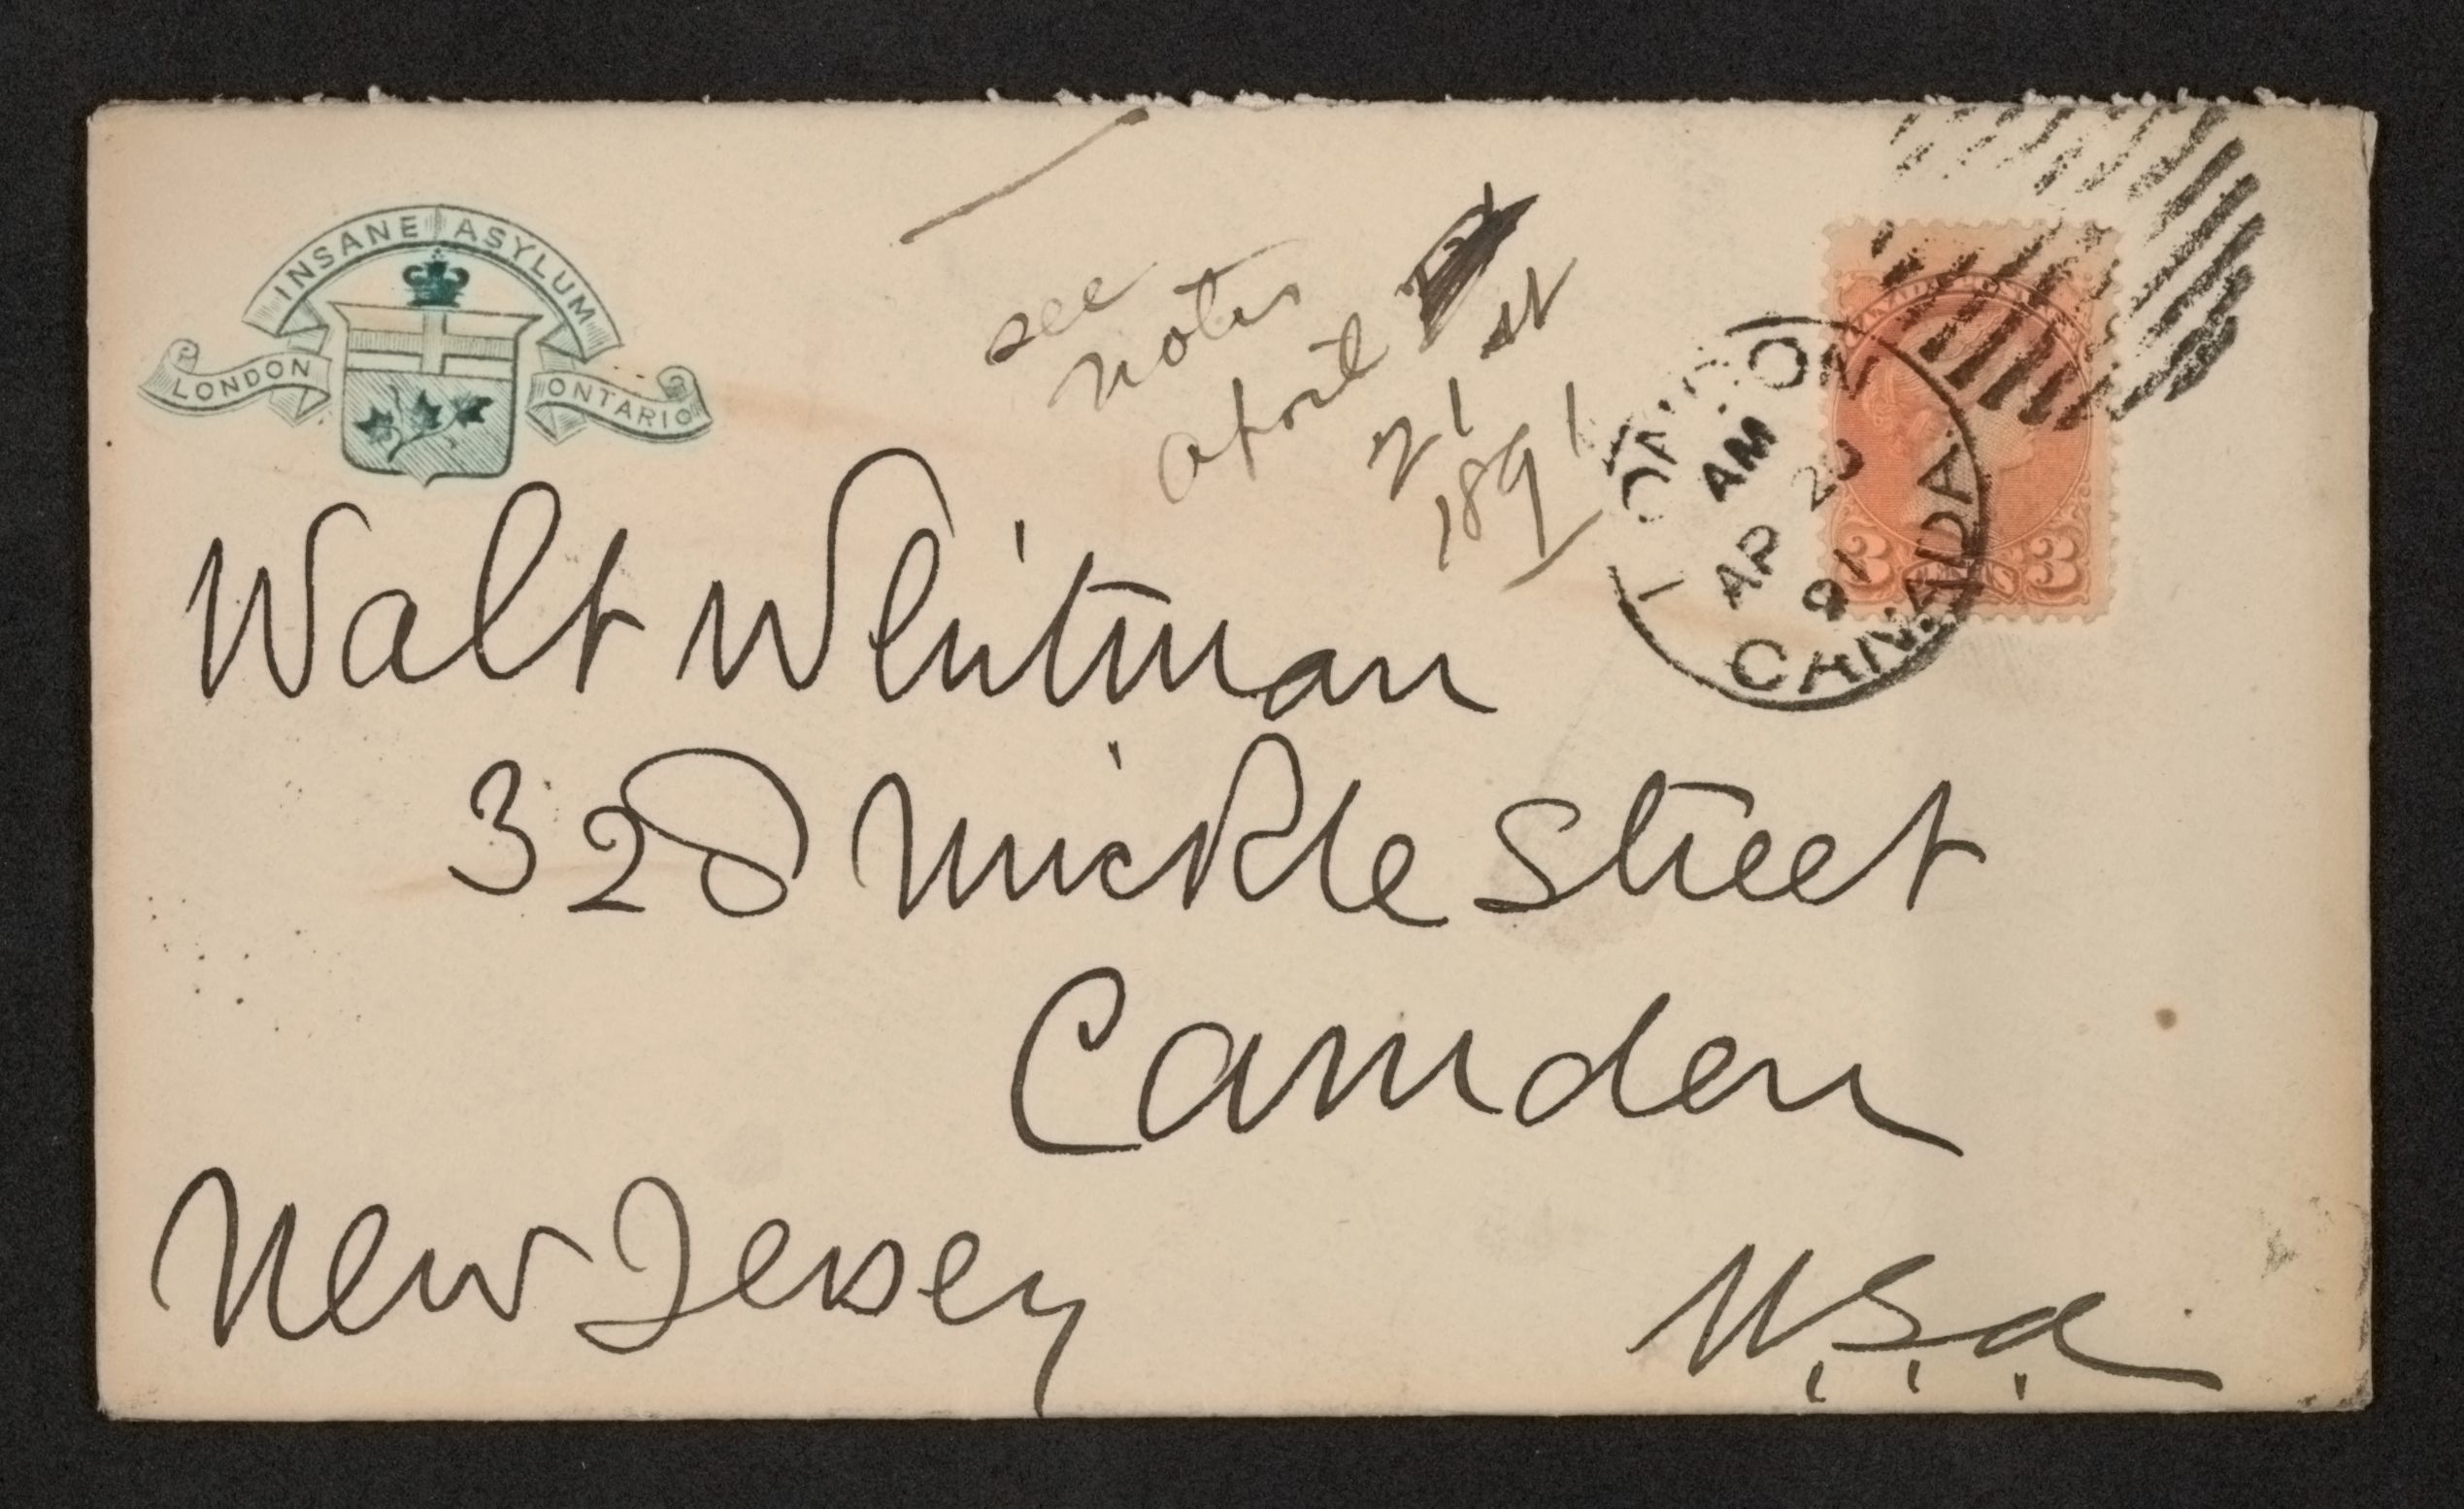 INSANE ASYLUM
LONDON ONTARIO
see
notes
April
21 st
1891
LONDON
AM
AP 20
91
CANADA
3 CENTS 3
Walt Whitman
328 Mickle Street
Camden
New Jersey
U.S.A.